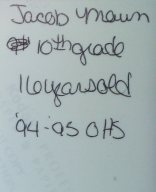 Jacob
10th grade
16 years old
'94-'95 OHS